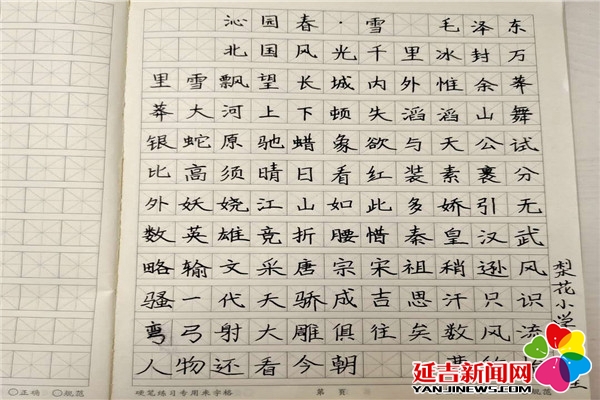 沁园春·雪 毛泽东
北国风光千里冰封万
里雪飘望长城内外惟余莽
莽大河上下顿失滔滔山舞
银蛇原驰蜡象欲与天公试
比高须晴日看红装素裹分
外妖娆江山如此多娇引无
数英雄竞折腰惜秦皇汉武
略输文采唐宗宋祖稍逊风
骚一代天骄成吉思汗只识
弯弓射大雕俱往矣数风流
人物还看今朝
梨花小学
○正确 ○规范
硬笔练习专用米字格 第 页
延吉新闻网